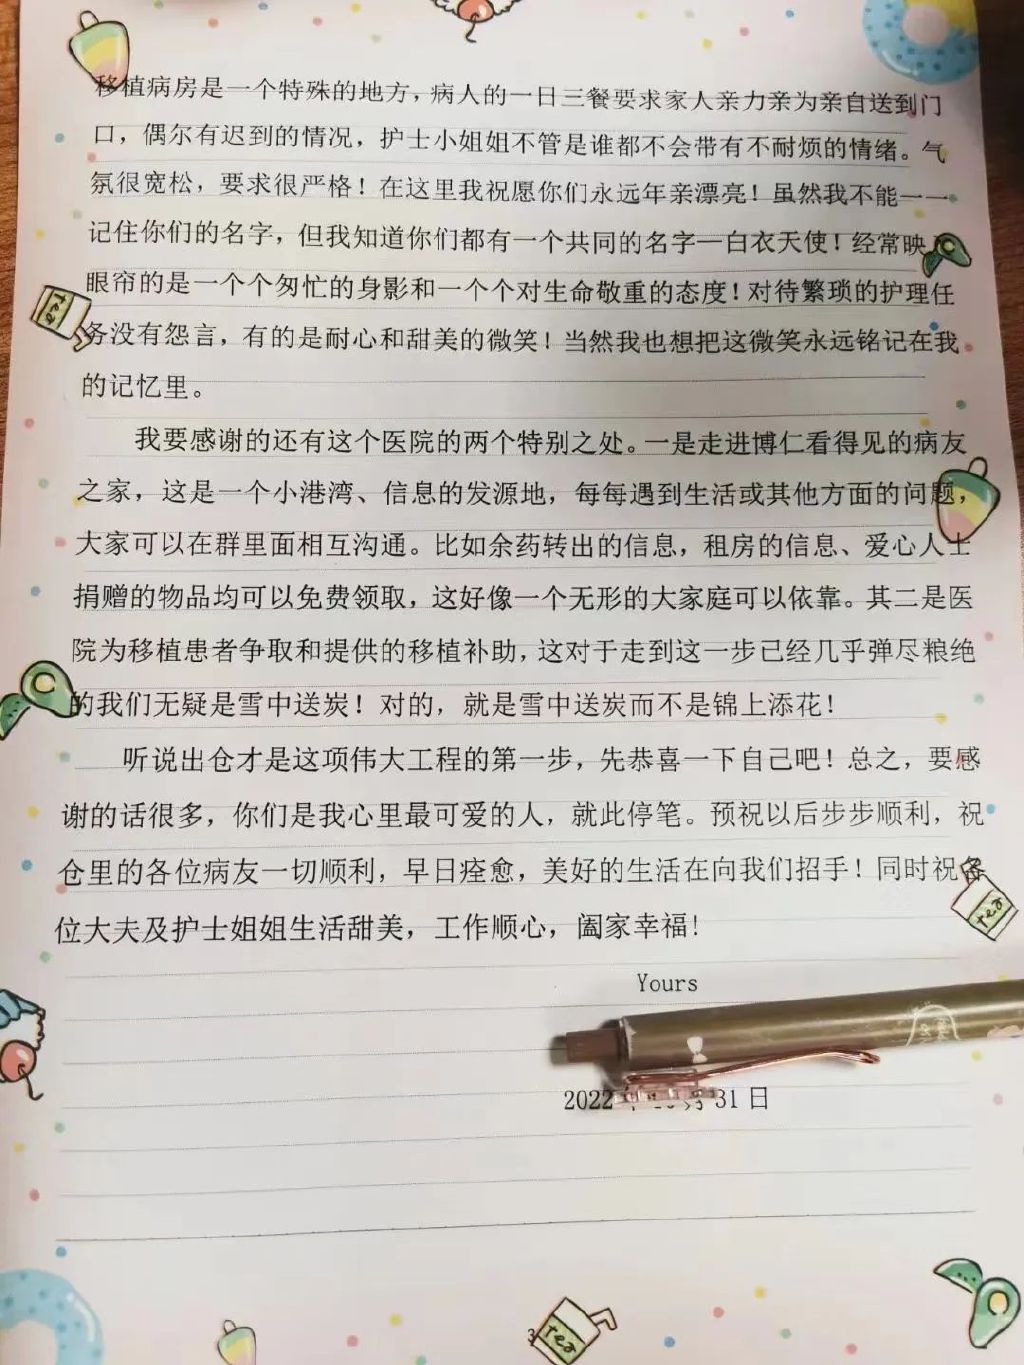 移植病房是一个特殊的地方，病人的一日三餐要求家人亲力亲为亲自送到门
口，偶尔有迟到的情况，护士小姐姐不管是谁都不会带有不耐烦的情绪。气
氛很宽松，要求很严格！在这里我祝愿你们永远年亲漂亮！虽然我不能一一
记住你们的名字，但我知道你们都有一个共同的名字—白衣天使！经常映
眼帘的是一个个匆忙的身影和一个个对生命敬重的态度！对待繁琐的护理任
务没有怨言，有的是耐心和甜美的微笑！当然我也想把这微笑永远铭记在我
的记忆里。
我要感谢的还有这个医院的两个特别之处。一是走进博仁看得见的病友
之家，这是一个小港湾、信息的发源地，每每遇到生活或其他方面的问题，
大家可以在群里面相互沟通。比如余药转出的信息，租房的信息、爱心人士
捐赠的物品均可以免费领取，这好像一个无形的大家庭可以依靠。其二是医
院为移植患者争取和提供的移植补助，这对于走到这一步已经几乎弹尽粮绝
的我们无疑是雪中送炭！对的，就是雪中送炭而不是锦上添花！
听说出仓才是这项伟大工程的第一步，先恭喜一下自己吧！总之，要感
谢的话很多，你们是我心里最可爱的人，就此停笔。预祝以后步步顺利，祝
仓里的各位病友一切顺利，早日痊愈，美好的生活在向我们招手！同时祝各
位大夫及护士姐姐生活甜美，工作顺心，阖家幸福！
Yours
2022 31 日
3
tea
tea
tea